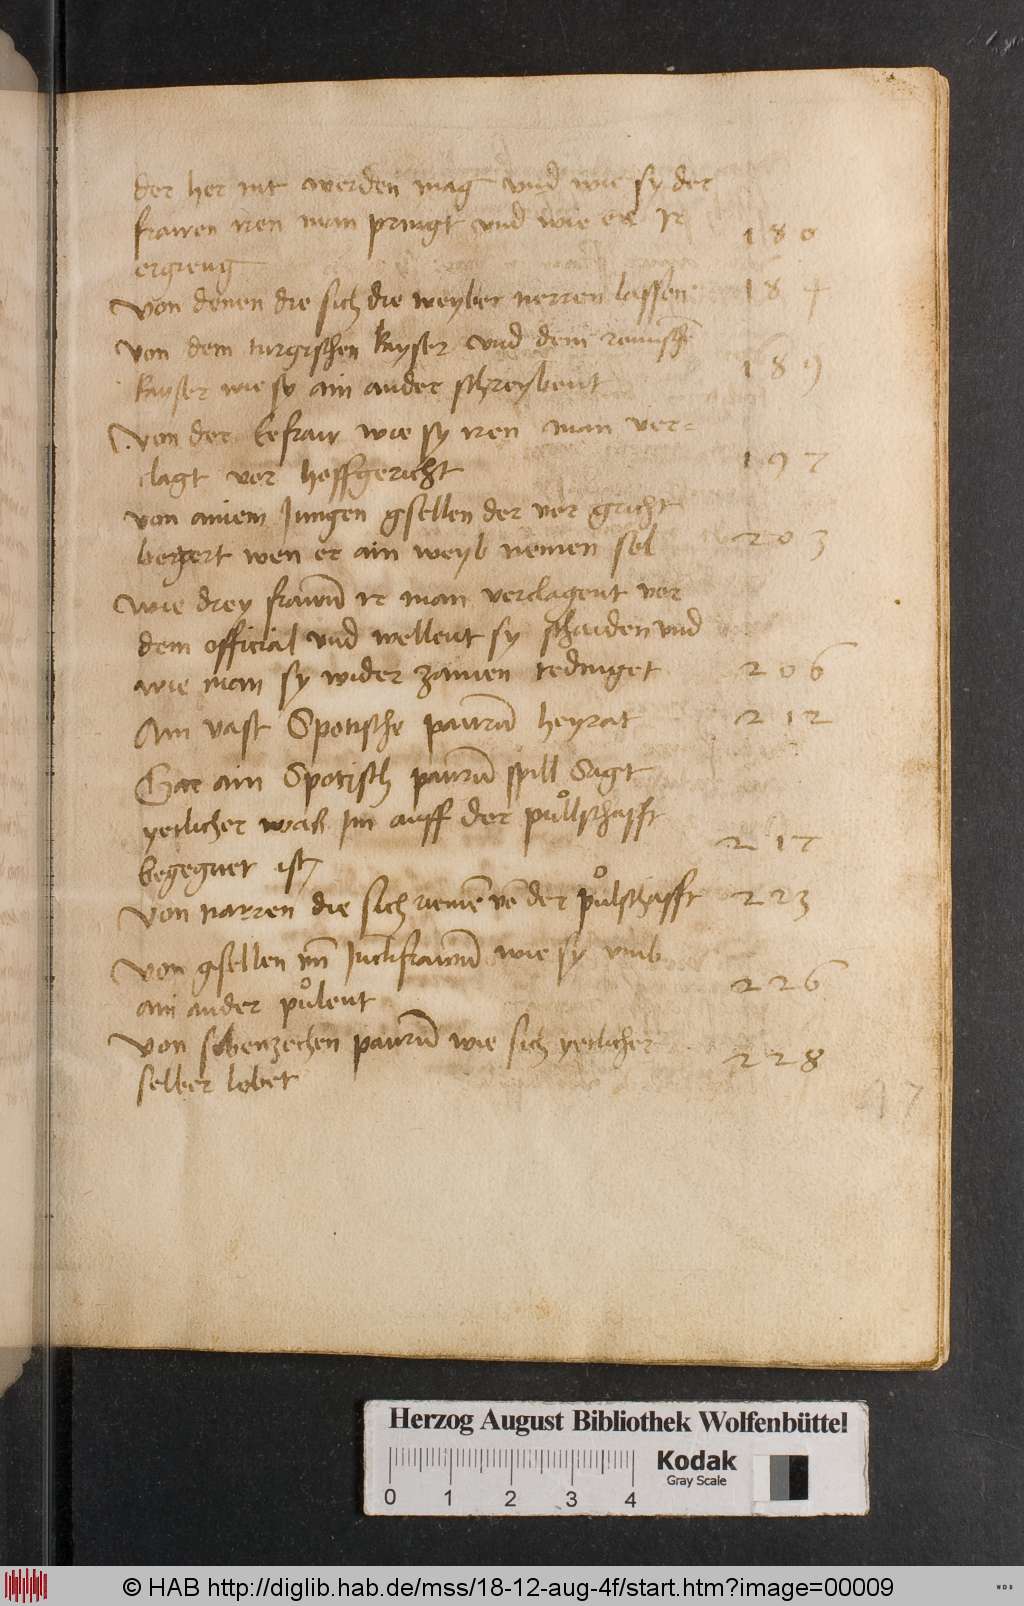 der her nit werden mag und wie sy der
frawen iren man pringt und wie er Ir
ergieng 180
Von denen die sich die weyber nerren lassen 184
Von dem turgischen kayser und dem römischē
kayser wie sy ain ander schreybent 189
Von der Eefraw wie sy iren man ver=
clagt vor hoffgericht 197
von ainem Jungen gsellen der vor gricht
begert wen er ain weyb nemen sol 203
Wie drey frawen̄ ir man verclagent vor
dem official und wellent sy schaiden und
wie man sy wider zamen tedinget 206
Ain vast Spotische pauren̄ heyrat 212
Gar ain Spotisch pauren̄ spill Sagt
yetlicher waß Im auff der půllschafft
begegnet ist 217
Von narren die sich riemē vō der půlschafft 223
Von gsellen un̄ Junckfrawen̄ wie sy umb
ain ander půlent 226
Von sibenzechen pauren̄ wie sich yetlicher
selber lobet 228
47
Herzog August Bibliothek Wolfenbüttel
Kodak
Gray Scale
0 1 2 3 4
© HAB http://diglib.hab.de/mss/18-12-aug-4f/start.htm?image=00009